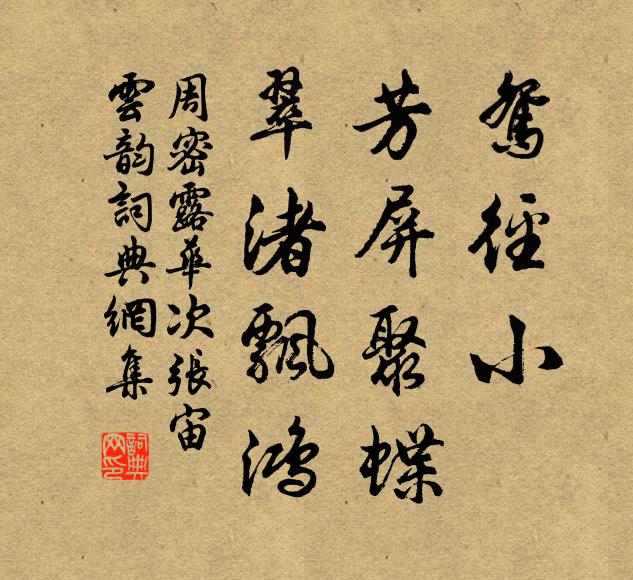 鴛徑小
芳屏聚蝶
翠渚飄鴻
周密露華次張宙
雲韵詞典網集
詞典網印